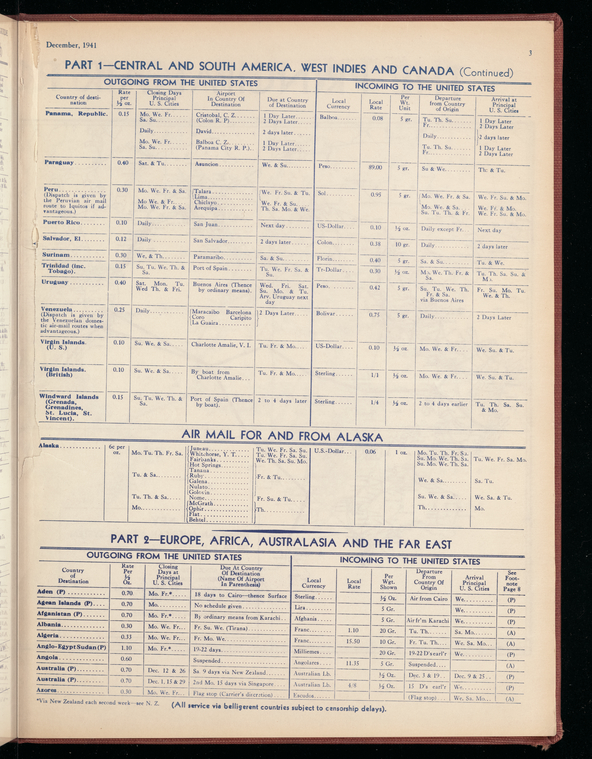 December, 1941
3
PART 1—CENTRAL AND SOUTH AMERICA. WEST INDIES AND CANADA (Continued)
OUTGOING FROM THE UNITED STATES INCOMING TO THE UNITED STATES
Country of desti-nation Rate per ½ oz. Closing Days Principal U. S. Cities Airport In Country Of Destination Due at Country of Destination Local Currency Local Rate Per Wt. Unit Departure from Country of Origin Arrival at Principal U. S. Cities
Panama, Republic. 0.15 Mo. We. Fr. Cristobal, C. Z. 1 Day Later Balboa 0.08 5 gr. Tu. Th. Su. 1 Day Later
Sa. Su. (Colon R. P) 2 Days Later Fr. 2 Days Later
Daily David 2 days later Daily 2 days later
Mo. We. Fr. Balboa C. Z. 1 Day Later Tu. Th. Su. 1 Day Later
Sa. Su. (Panama City R. P.) 2 Days Later Fr. 2 Days Later
Paraguay 0.40 Sat. & Tu. Asuncion We. & Su. Peso 89.00 5 gr. Su & We. Th: & Tu.
Peru 0.30 Mo. We. Fr. & Sa. Talara We. Fr. Su. & Tu. Sol 0.95 5 gr. Mo. We. Fr. & Sa. We. Fr. Su. & Mo.
(Dispatch is given by the Peruvian air mail route to Iquitos if ad-vantageous.) Lima
Mo We. & Fr. Chiclayo We. Fr. & Su. Mo. We. & Su. We. Fr. & Mo.
Mo. We. Fr. & Sa. Arequipa Th. Sa. Mo. & We. Su. Tu. Th. & Fr. We. Fr. Su. & Mo.
Puerto Rico 0.10 Daily San Juan Next day US-Dollar 0.10 ½ oz. Daily except Fr. Next day
Salvador, El 0.12 Daily San Salvador 2 days later Colon 0.38 10 gr. Daily 2 days later
Surinam 0.30 We. & Th. Paramaribo Sa. & Su. Florin 0.40 5 gr. Sa. & Su. Tu. & We.
Trinidad (inc. Tobago). 0.15 Su. Tu. We. Th. & Sa. Port of Spain Tu. We. Fr. Su. & Su. Tr-Dollar 0.30 ½ oz. Mo. We. Th. Fr. & Sa. Tu. Th. Sa. Su. &
Uruguay 0.40 Sat. Mon. Tu. Wed Th. & Fri. Buenos Aires (Thence by ordinary means). Wed. Fri. Sat. Su. Mo. & Tu. Arv. Uruguay next day Peso 0.42 5 gr. Su. Tu. We. Th. Fr. & Sa. via Buenos Aires Fr. Su. Mo. Tu. We. & Th.
Venezuela 0.25 Daily Maracaibo Barcelona Coro Caripito La Guaira 2 Days Later Bolivar 0.75 5 gr. Daily 2 Days Later
(Dispatch is given by the Venezuelan domes-tic air-mail routes when advantageous.)
Virgin Islands (U. S.) 0.10 Su. We. & Sa. Charlotte Amalie, V. I. Tu. Fr. & Mo. US-Dollar 0.10 ½ oz. Mo. We. & Fr. We. Su. & Tu.
Virgin Islands. (British) 0.10 Su. We. & Sa. By boat from Charlotte Amalie Tu. Fr. & Mo. Sterling 1/1 ½ oz. Mo. We. & Fr. We. Su. & Tu.
Windward Islands (Grenada, Grenadines, St. Lucia, St. Vincent). 0.15 Su. Tu. We. Th. & Sa. Port of Spain (Thence by boat). 2 to 4 days later Sterling 1/4 ½ oz. 2 to 4 days earlier Tu. Th. Sa. Su. & Mo.
AIR MAIL FOR AND FROM ALASKA
Alaska 6c per oz. Mo. Tu. Th. Fr. Sa. Juneau Tu. We. Fr. Sa. Su. U.S.-Dollar 0.06 1 oz. Mo. Tu. Th. Fr. Sa. Tu. We. Fr. Sa. Mo.
Whitehorse, Y. T. Tu. We. Fr. Sa. Su. Su. Mo. We. Th. Sa.
Fairbanks We. Th. Sa. Su. Mo. Su. Mo. We. Th. Sa.
Hot Springs
Tanana
Tu. & Sa. Ruby Fr. & Tu. We. & Sa. Sa. Tu.
Galena
Nulato
Golovin
Tu. Th. & Sa. Nome Fr. Su. & Tu. Su. We. & Sa. We. Sa. & Tu.
McGrath
Mo. Ophir Th. Th. Mo.
Flat
Bethel
PART 2—EUROPE, AFRICA, AUSTRALASIA AND THE FAR EAST
OUTGOING FROM THE UNITED STATES INCOMING TO THE UNITED STATES
Country of Destination Rate Per ½ Oz. Closing Days at Principal U. S. Cities Due At Country Of Destination (Name Of Airport In Parenthesis) Local Currency Local Rate Per Wgt. Shown Departure From Country Of Origin Arrival Principal U. S. Cities See Foot-note Page 8
Aden (P) 0.70 Mo. Fr.* 18 days to Cairo—thence Surface Sterling ½ Oz. Air from Cairo We. (P)
Agean Islands (P) 0.70 Mo. No schedule given Lira 5 Gr. We. (P)
Afganistan (P) 0.70 Mo. Fr.* By ordinary means from Karachi Afghania 5 Gr. Air fr'm Karachi We. (P)
Albania 0.30 Mo. We. Fr. Fr. Su. We. (Tirana) Franc 1.10 20 Gr. Tu. Th. Sa. Mo. (A)
Algeria 0.33 Mo. We. Fr. Fr. Mo. We. Franc 15.50 10 Gr. Fr. Tu. Th. We. Sa. Mo. (A)
Anglo-Egypt Sudan(P) 1.10 Mo. Fr.* 19-22 days Milliemes 20 Gr. 19-22 D'searl'r We. (P)
Angola 0.60 Suspended Angolares 11.35 5 Gr. Suspended (A)
Australia (P) 0.70 Dec. 12 & 26 Sa. 9 days via New Zealand Australian Lb. ½ Oz. Dec. 5 & 19 Dec. 9 & 25 (P)
Australia (P) 0.70 Dec. 1, 15 & 29 2nd Mo. 15 days via Singapore Australian Lb. 4/8 ½ Oz. 15 D's earl'r We. (P)
Azores 0.30 Mo. We. Fr. Flag stop (Carrier's discretion) Escudia (Flag stop) We. Su. Mo. (A)
*Via New Zealand each second work—see N. Z. (All service via belligerent countries subject to censorship delays).